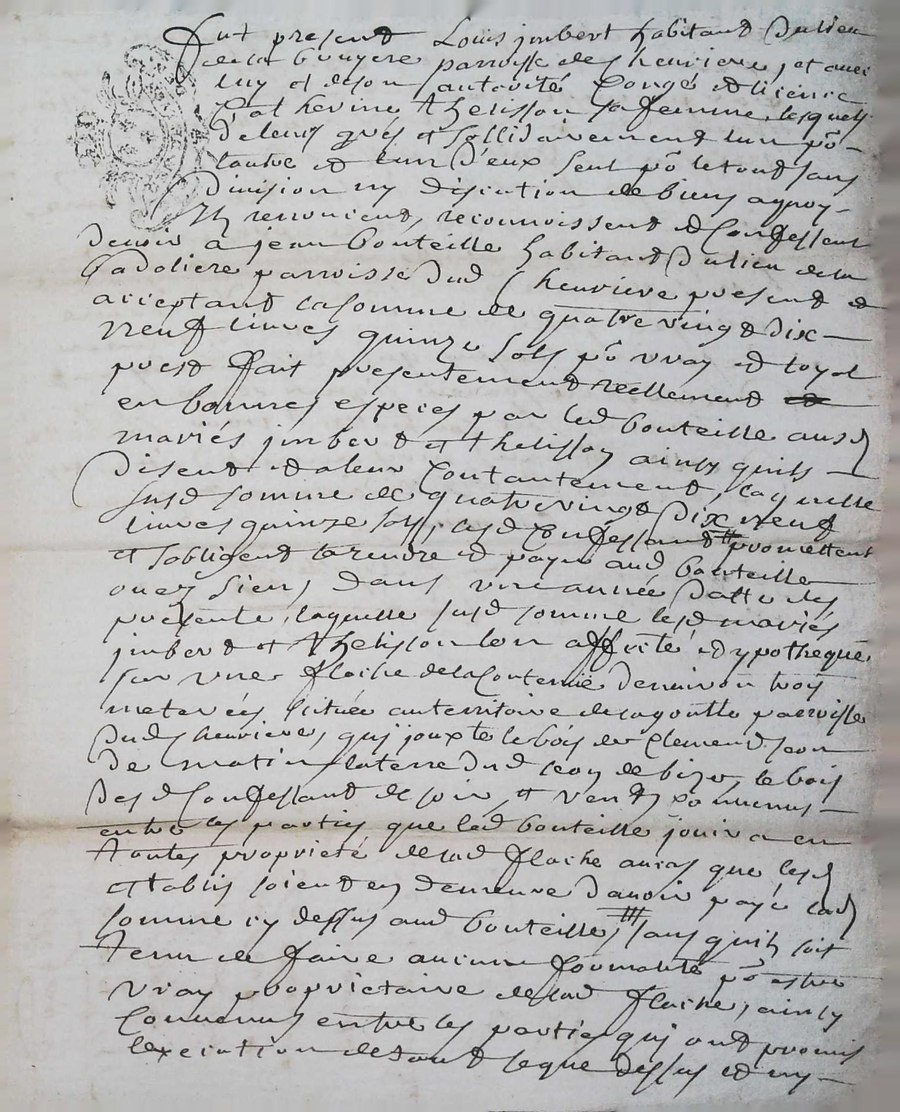 Fut present Louis jmbert habitant du lieu
de la bruyere parroisse de Cheuriere, et auec
luy et de son autorité Congé et licence
Catherine thelisson sa femme, lesquels
de leurs grés et sollidairement lun pō
lautre et lun d'eux seul pō le tout sans
Diuision ny discution de biens aquoy
Ils renoncent, reconnoissent et Confessent
deuoir a jean bouteille habitant du lieu de la
badoliere parroisse dud Cheuriere present et
acceptant la somme de quatre vingt dix
neuf liures quinze sols pō vray et loyal
prest fait presentement reellement
en bonnes especes par led bouteille ausd
mariés jmbert et thelisson ainsy quils
disent et a leur Contantement, laquelle
susd somme de quatre vingt dix neuf
liures quinze sols, lesd Confessant promettent
et sobligent la rendre et payer aud bouteille
ou es siens dans vne année datte des
presente, laquelle susd somme lesd mariés
jmbert et thelisson lon affecté et ypothequé
sur vne flache de la Contenue denuiron trois
meterées scituée au territoire de parroisse
dud Cheuriere, qui jouxte le bois de Clement
de matin, la terre dud de bize, le bois
desd Confessant de soir, et Conuenus
entre les parties que led bouteille jouira en
toutes propriété de lad flache aucas que lesd
establis soient en demeure dauoir payé lad
somme cy dessus aud bouteille, sans quil soit
tenu de faire aucune formalité pō estre
vray proprietaire de lad flache, ainsy
Conuenus entre les parties qui ont promis
lexecution de tout ce que dessus et ny